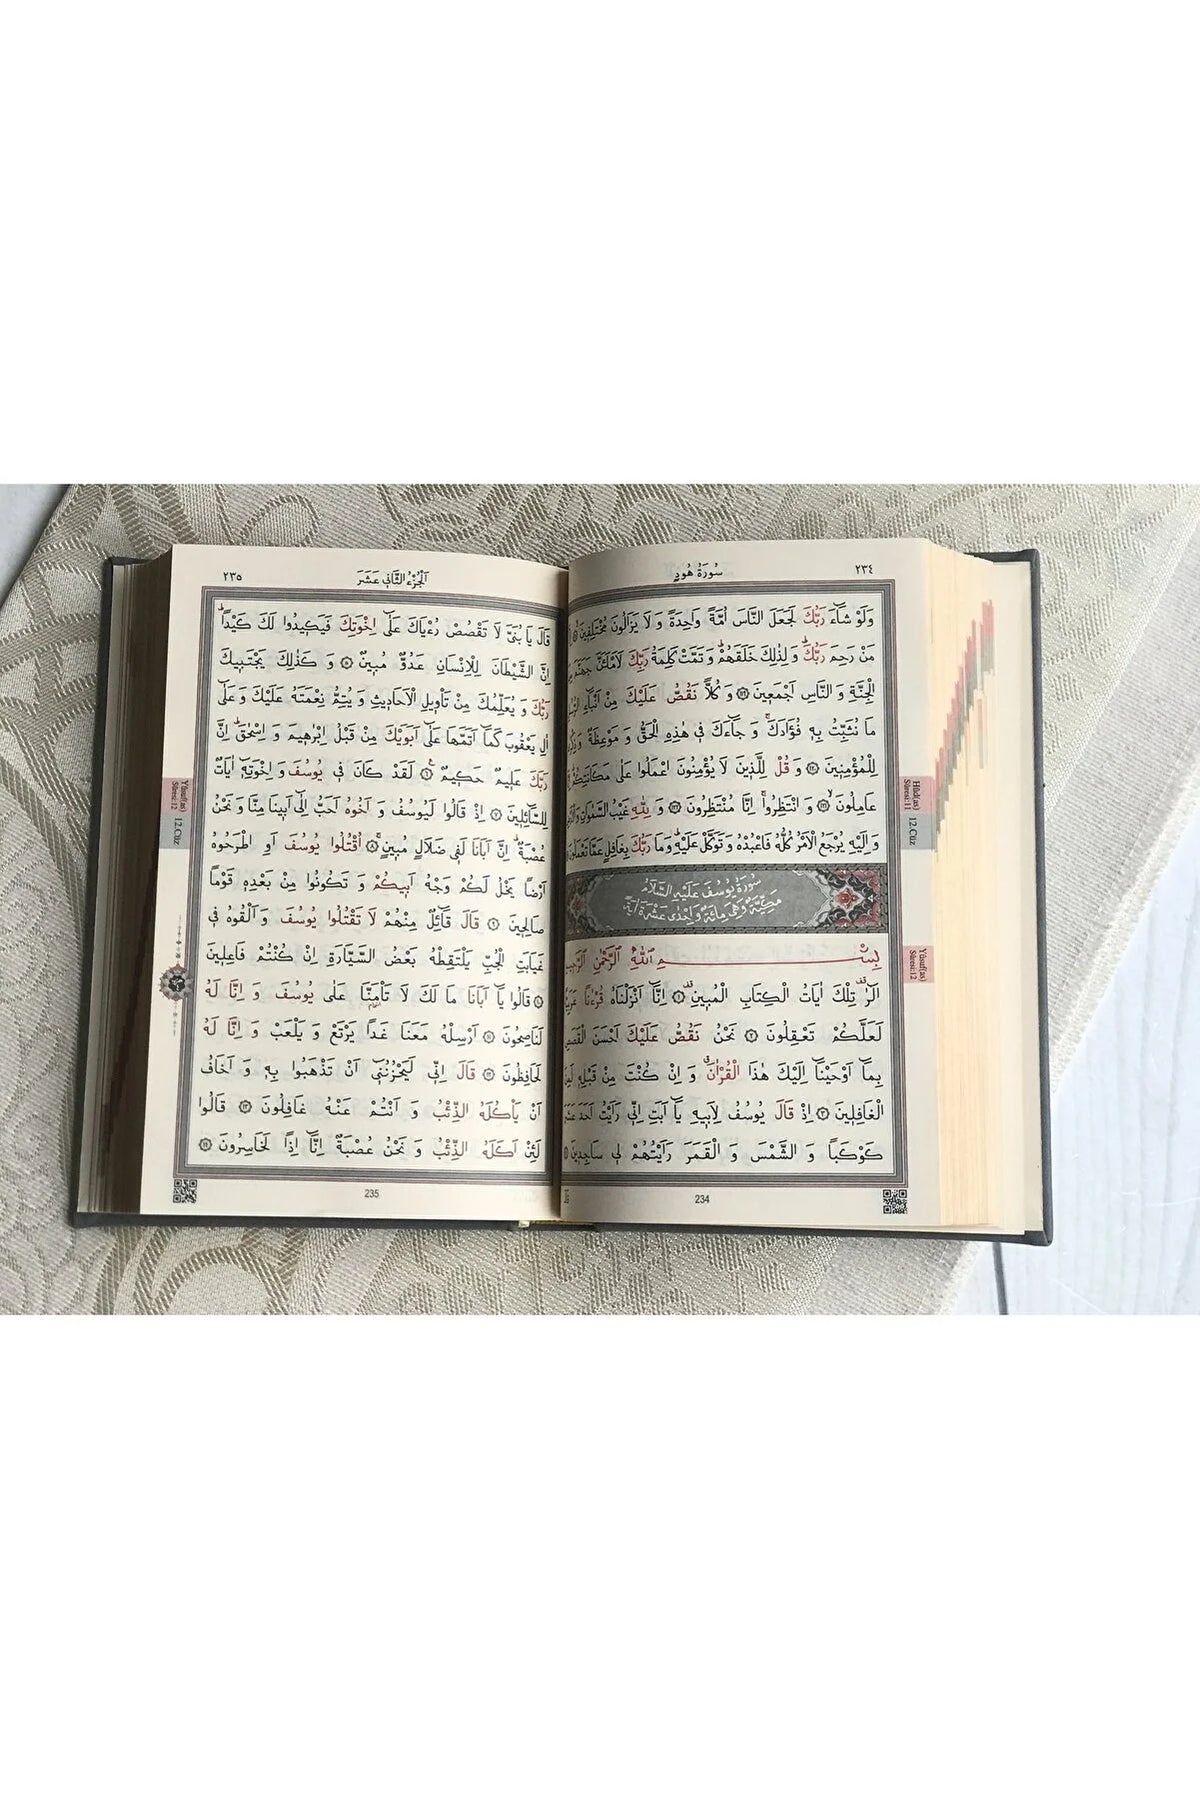 ٢٣٤
سُورَةُ هُودٍ
وَلَوْ شَآءَ رَبُّكَ لَجَعَلَ النَّاسَ اُمَّةً وَاحِدَةً وَ لَا يَزَالُونَ مُخْتَلِفِينَ
مَنْ رَحِمَ رَبُّكَ وَ لِذٰلِكَ خَلَقَهُمْ وَ تَمَّتْ كَلِمَةُ رَبِّكَ لَاَمْلَئَنَّ جَهَنَّمَ
الْجِنَّةِ وَ النَّاسِ اَجْمَعِينَ ﴿١١٩﴾ وَ كُلًّا نَقُصُّ عَلَيْكَ مِنْ اَنْبَاءِ
مَا نُثَبِّتُ بِهِ فُؤَادَكَ وَ جَآءَكَ فِي هٰذِهِ الْحَقُّ وَ مَوْعِظَةٌ
لِلْمُؤْمِنِينَ ﴿١٢٠﴾ وَ قُلْ لِلَّذِينَ لَا يُؤْمِنُونَ اعْمَلُوا عَلٰى مَكَانَتِكُمْ
عَامِلُونَ ﴿١٢١﴾ وَ انْتَظِرُوا اِنَّا مُنْتَظِرُونَ ﴿١٢٢﴾ وَ لِلّٰهِ غَيْبُ السَّمٰوَاتِ
وَ اِلَيْهِ يُرْجَعُ الْاَمْرُ كُلُّهُ فَاعْبُدْهُ وَ تَوَكَّلْ عَلَيْهِ وَمَا رَبُّكَ بِغَافِلٍ عَمَّا تَعْمَلُونَ
سُورَةُ يُوسُفَ عَلَيْهِ السَّلَامُ
مَكِّيَّةٌ وَهِيَ مِائَةٌ وَاِحْدٰى عَشْرَةَ اٰيَةً
بِسْمِ اللّٰهِ الرَّحْمٰنِ الرَّحِيمِ
الٓرٰ تِلْكَ اٰيَاتُ الْكِتَابِ الْمُبِينِ ﴿١﴾ اِنَّا اَنْزَلْنَاهُ قُرْءٰنًا
لَعَلَّكُمْ تَعْقِلُونَ ﴿٢﴾ نَحْنُ نَقُصُّ عَلَيْكَ اَحْسَنَ الْقَصَصِ
بِمَآ اَوْحَيْنَآ اِلَيْكَ هٰذَا الْقُرْاٰنَ وَ اِنْ كُنْتَ مِنْ قَبْلِهِ
الْغَافِلِينَ ﴿٣﴾ اِذْ قَالَ يُوسُفُ لِاَبِيهِ يَآ اَبَتِ اِنِّي رَاَيْتُ اَحَدَ عَشَرَ
كَوْكَبًا وَ الشَّمْسَ وَ الْقَمَرَ رَاَيْتُهُمْ لِي سَاجِدِينَ
234
Hûd(as) Sûresi:11 12.Cüz
Yûsuf(as) Sûresi:12
٢٣٥
اَلْجُزْءُ الثَّانِي عَشَرَ
قَالَ يَا بُنَيَّ لَا تَقْصُصْ رُءْيَاكَ عَلٰٓى اِخْوَتِكَ فَيَكِيدُوا لَكَ كَيْدًا
اِنَّ الشَّيْطَانَ لِلْاِنْسَانِ عَدُوٌّ مُبِينٌ ﴿٥﴾ وَ كَذٰلِكَ يَجْتَبِيكَ
رَبُّكَ وَ يُعَلِّمُكَ مِنْ تَأْوِيلِ الْاَحَادِيثِ وَ يُتِمُّ نِعْمَتَهُ عَلَيْكَ وَ عَلٰٓى
اٰلِ يَعْقُوبَ كَمَآ اَتَمَّهَا عَلٰٓى اَبَوَيْكَ مِنْ قَبْلُ اِبْرٰهِيمَ وَ اِسْحٰقَ اِنَّ
رَبَّكَ عَلِيمٌ حَكِيمٌ ﴿٦﴾ لَقَدْ كَانَ فِي يُوسُفَ وَ اِخْوَتِهِ اٰيَاتٌ
لِلسَّآئِلِينَ ﴿٧﴾ اِذْ قَالُوا لَيُوسُفُ وَ اَخُوهُ اَحَبُّ اِلٰٓى اَبِينَا مِنَّا وَ نَحْنُ
عُصْبَةٌ اِنَّ اَبَانَا لَفِي ضَلَالٍ مُبِينٍ ﴿٨﴾ اُقْتُلُوا يُوسُفَ اَوِ اطْرَحُوهُ
اَرْضًا يَخْلُ لَكُمْ وَجْهُ اَبِيكُمْ وَ تَكُونُوا مِنْ بَعْدِهِ قَوْمًا
صَالِحِينَ ﴿٩﴾ قَالَ قَآئِلٌ مِنْهُمْ لَا تَقْتُلُوا يُوسُفَ وَ اَلْقُوهُ فِي
غَيَابَتِ الْجُبِّ يَلْتَقِطْهُ بَعْضُ السَّيَّارَةِ اِنْ كُنْتُمْ فَاعِلِينَ
﴿١٠﴾ قَالُوا يَآ اَبَانَا مَا لَكَ لَا تَأْمَنَّا عَلٰى يُوسُفَ وَ اِنَّا لَهُ
لَنَاصِحُونَ ﴿١١﴾ اَرْسِلْهُ مَعَنَا غَدًا يَرْتَعْ وَ يَلْعَبْ وَ اِنَّا لَهُ
لَحَافِظُونَ ﴿١٢﴾ قَالَ اِنِّي لَيَحْزُنُنِي اَنْ تَذْهَبُوا بِهِ وَ اَخَافُ
اَنْ يَاْكُلَهُ الذِّئْبُ وَ اَنْتُمْ عَنْهُ غَافِلُونَ ﴿١٣﴾ قَالُوا
لَئِنْ اَكَلَهُ الذِّئْبُ وَ نَحْنُ عُصْبَةٌ اِنَّآ اِذًا لَخَاسِرُونَ ﴿١٤﴾
235
Yûsuf(as) Sûresi:12 12.Cüz